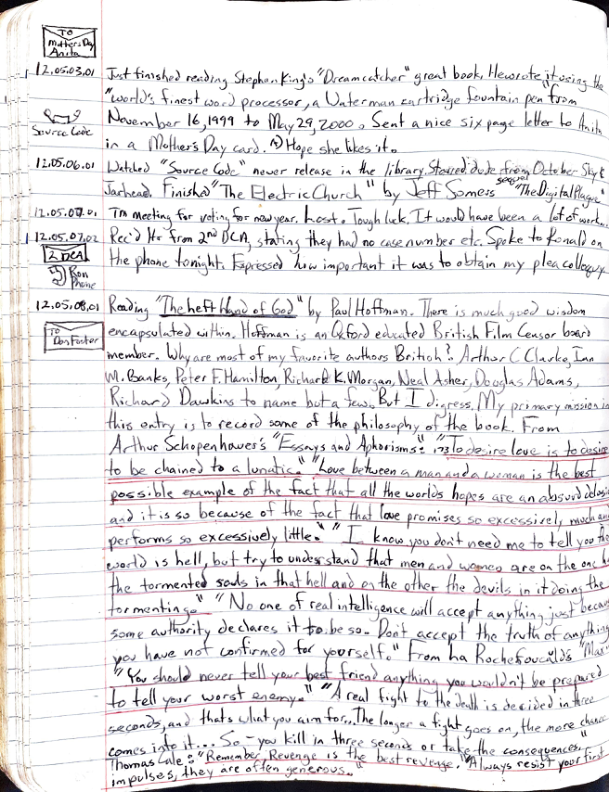 TO
Mothers Day
Anita
12.05.03.01 Just finished reading Stephen King's "Dreamcatcher" great book. He wrote it using the
"world's finest word processor, a Waterman cartridge fountain pen" from
November 16, 1999 to May 29, 2000. Sent a nice six page letter to Anita
Source Code
in a Mother's Day card. Hope she likes it.
12.05.06.01 Watched "Source Code" newer release in the library. Starred dude from October Sky &
Jarhead. Finished "The Electric Church" by Jeff Somers sequel "The Digital Plague"
12.05.07.01 TM meeting for voting for new year. Lost. Tough luck. It would have been a lot of work
12.05.07.02 Rec'd ltr from 2nd DCA, stating they had no case number etc. Spoke to Ronald on
2 DCA
the phone tonight. Expressed how important it was to obtain my plea colloquy.
Ron
Phone
12.05.08.01 Reading "The Left Hand of God" by Paul Hoffman. There is much good wisdom
TO
Dan Foster
encapsulated within. Hoffman is an Oxford educated British Film Censor board
member. Why are most of my favorite authors British? Arthur C Clarke, Ian
M. Banks, Peter F. Hamilton, Richard K. Morgan, Neal Asher, Douglas Adams,
Richard Dawkins to name but a few. But I digress. My primary mission in
this entry is to record some of the philosophy of the book. From
Arthur Schopenhower's "Essays and Aphorisms": "To desire love is to desire
to be chained to a lunatic." "Love between a man and a woman is the best
possible example of the fact that all the worlds hopes are an absurd
and it is so because of the fact that love promises so excessively much and
performs so excessively little." "I know you don't need me to tell you the
world is hell, but try to understand that men and women are on the one
the tormented souls in that hell and on the other the devils in it doing the
tormenting." "No one of real intelligence will accept anything just
some authority declares it to be so. Don't accept the truth of anything
you have not confirmed for yourself." From La Rochefoucald's
"You should never tell your best friend anything you wouldn't be prepared
to tell your worst enemy." "A real fight to the death is decided in three
seconds, and thats what you aim for... The longer a fight goes on, the more chance
comes into it... So - you kill in three seconds or take the consequences."
Thomas Cale: "Remember Revenge is the best revenge. "Always resist your first
impulses, they are often generous."